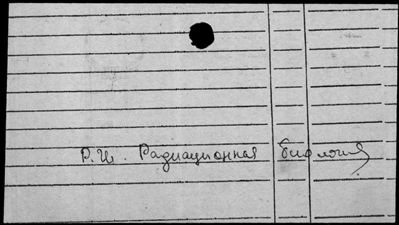 Р.Ж. Радиационная биология